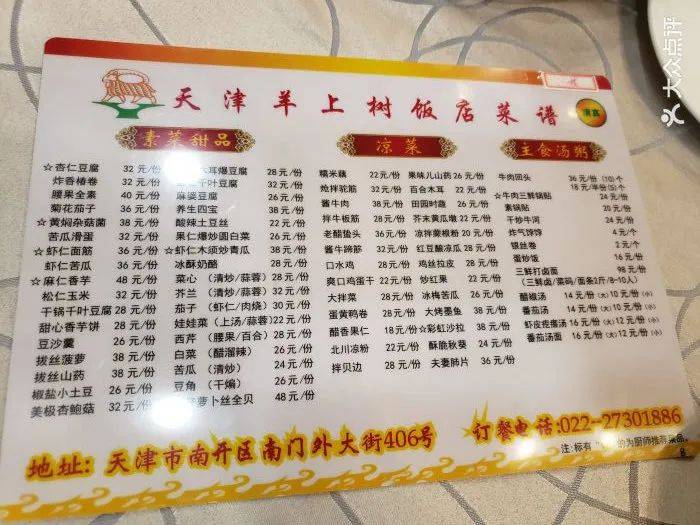 大众点评
天津羊上树饭店菜谱
清真
素菜甜品
☆杏仁豆腐 32元/份
炸香椿卷 32元/份
腰果全素 40元/份
菊花茄子 36元/份
☆黄焖杂菇菌 38元/份
苦瓜滑蛋 32元/份
☆虾仁面筋 36元/份
虾仁苦瓜 36元/份
☆麻仁香芋 48元/份
松仁玉米 32元/份
干锅千叶豆腐 28元/份
甜心香芋饼 28元/份
豆沙羹 26元/份
拔丝菠萝 38元/份
拔丝山药 38元/份
椒盐小土豆 26元/份
美极杏鲍菇 32元/份
木耳爆豆腐 28元/份
千叶豆腐 32元/份
麻婆豆腐 28元/份
养生四宝 38元/份
酸辣土豆丝 22元/份
果仁爆炒圆白菜 26元/份
☆虾仁木须炒青瓜 38元/份
冰酥奶酪 28元/份
菜心（清炒/蒜蓉）28元/份
芥兰（清炒/蒜蓉）28元/份
茄子（虾仁/肉烧）30元/份
娃娃菜（上汤/蒜蓉）22元/份
西芹（腰果/百合）28元/份
白菜（醋溜辣）24元/份
苦瓜（清炒）24元/份
豆角（干煸）26元/份
萝卜丝全贝 48元/份
凉菜
糯米藕 22元/份
炝拌驼筋 32元/份
酱牛肉 38元/份
拌牛板筋 28元/份
老醋蛰头 36元/份
酱牛蹄筋 32元/份
口水鸡 28元/份
爽口鸡蛋干 22元/份
大拌菜 28元/份
蛋黄鸭卷 28元/份
醋香果仁 18元/份
北川凉粉 22元/份
拌贝边 38元/份
果味儿山药 26元/份
百合木耳 22元/份
田园时蔬 26元/份
芥末黄瓜墩 22元/份
凉拌蕨根粉 20元/份
红豆酸凉瓜 28元/份
鸡丝拉皮 28元/份
炝红果 28元/份
冰梅苦瓜 26元/份
大烤墨鱼 38元/份
☆彩虹沙拉 38元/份
酥脆秋葵 24元/份
夫妻肺片 36元/份
主食汤粥
牛肉回头 36元/份（10）个
18元/半份（5）个
☆牛肉三鲜锅贴 24元/份
素锅贴 20元/份
干炒牛河 24元/份
炸气馋馋 4元/个
银丝卷 2元/个
蛋炒饭 16元/份
三鲜打卤面 98元/份
（三鲜卤/菜码/面条2斤/8-10人）
醋椒汤 14元/份（大）10元/份（小）
番茄汤 14元/份（大）10元/份（小）
虾皮疙瘩汤 16元/份（大）12元/份（小）
番茄汤面 16元/份（大）12元/份（小）
地址：天津市南开区南门外大街406号
订餐电话:022-27301886
注:标有"☆"的为厨师推荐菜品